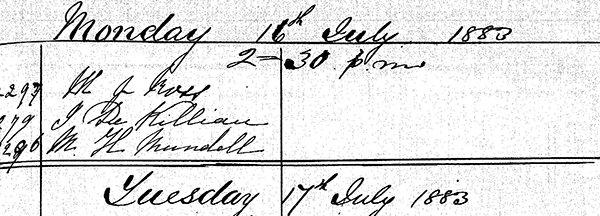 Monday 16th July 1883
2-30 p.m.
297 M J Ross
279 J De Killian
296 M. H Mundell
Tuesday 17th July 1883